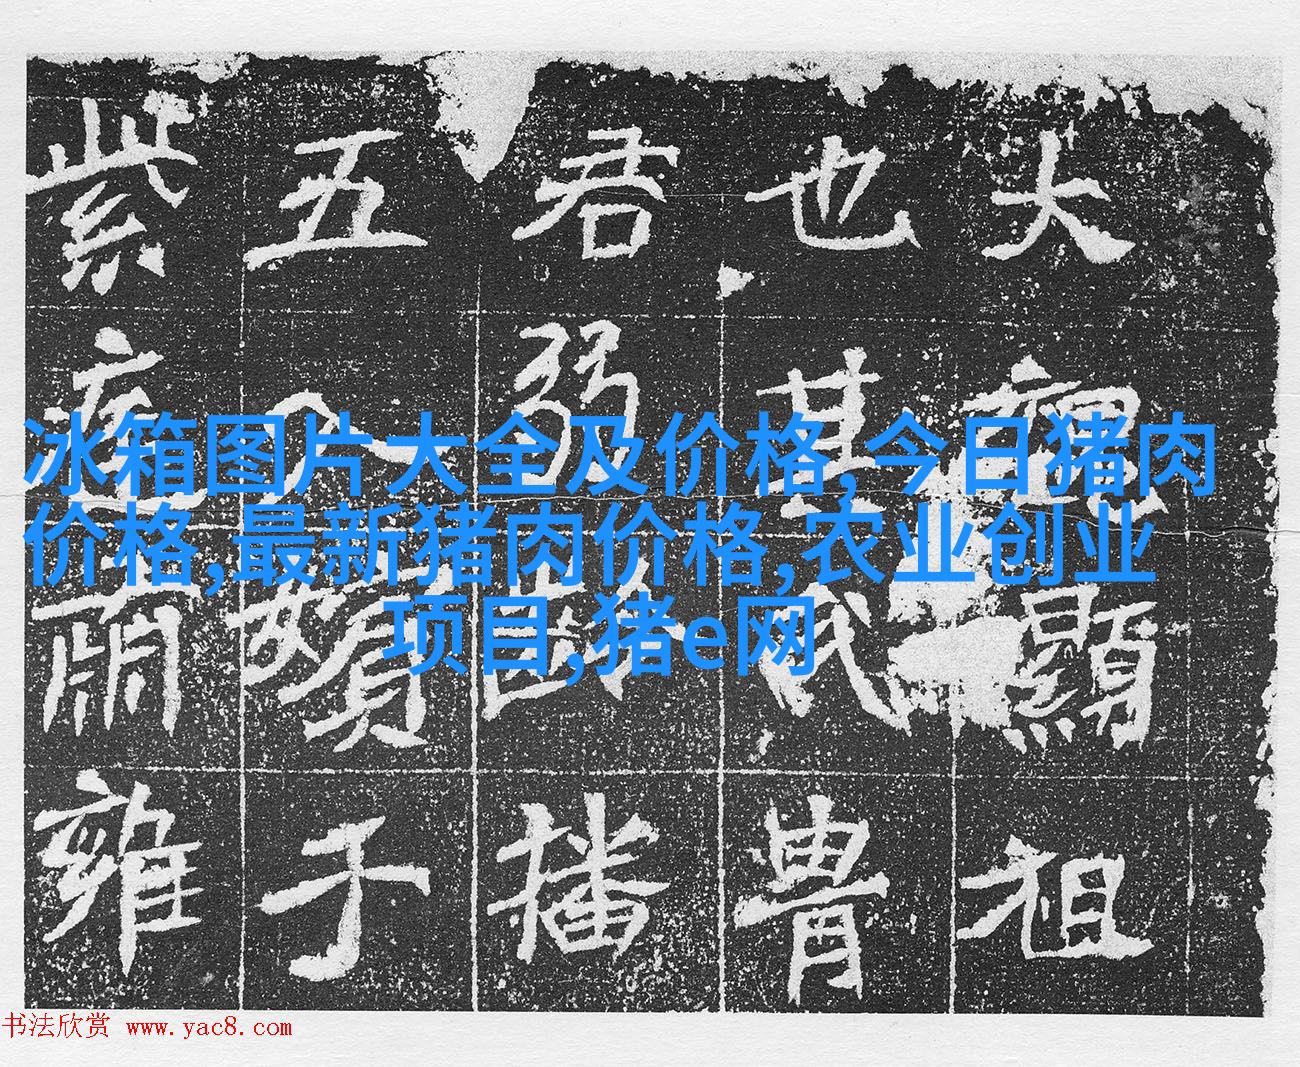 冰箱图片大全及价格,今日猪肉
价格,最新猪肉价格,农业创业
项目,猪e网
大 顯 祖
也 其 氏 胄
君 弱 播
五 于
紫 肅 雍
书法欣赏 www.yac8.com